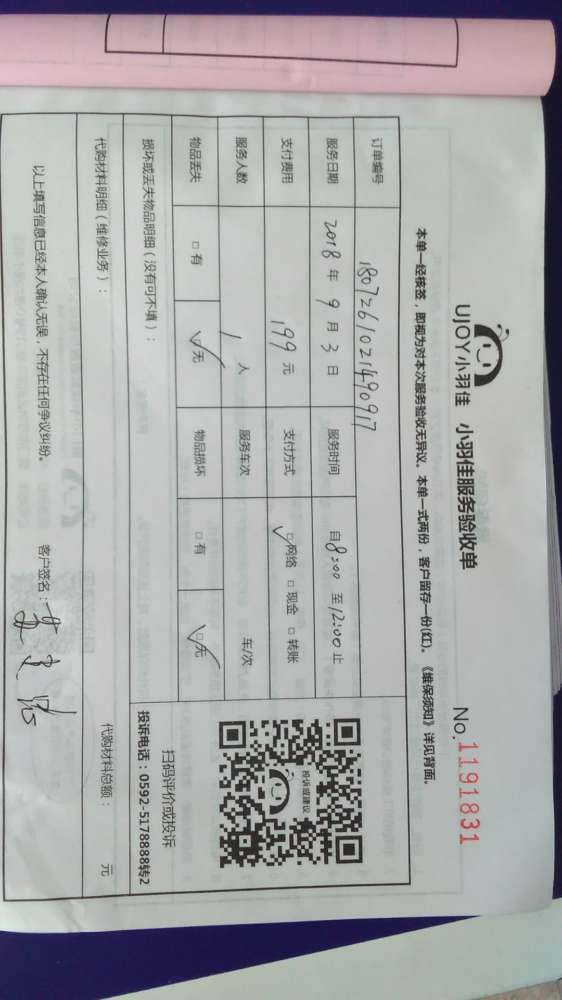 UJOY小羽佳 小羽佳服务验收单
No.1191831
本单一经核签，即视为对本次服务验收无异议。本单一式两份，客户留存一份(红)。《维保须知》详见背面。
订单编号 1807261021490917
服务日期 2018年9月3日 服务时间 自8:00至12:00止
支付费用 199元 支付方式 ☑网络 □现金 □转账
服务人数 1人 服务车次 车/次
物品丢失 □有 ☑无 物品损坏 □有 ☑无
投诉或建议
扫码评价或投诉
投诉电话：0592-5178888转2
损坏或丢失物品明细（没有可不填）：
代购材料明细（维修业务）： 代购材料总额： 元
以上填写信息已经本人确认无误，不存在任何争议纠纷。 客户签名：